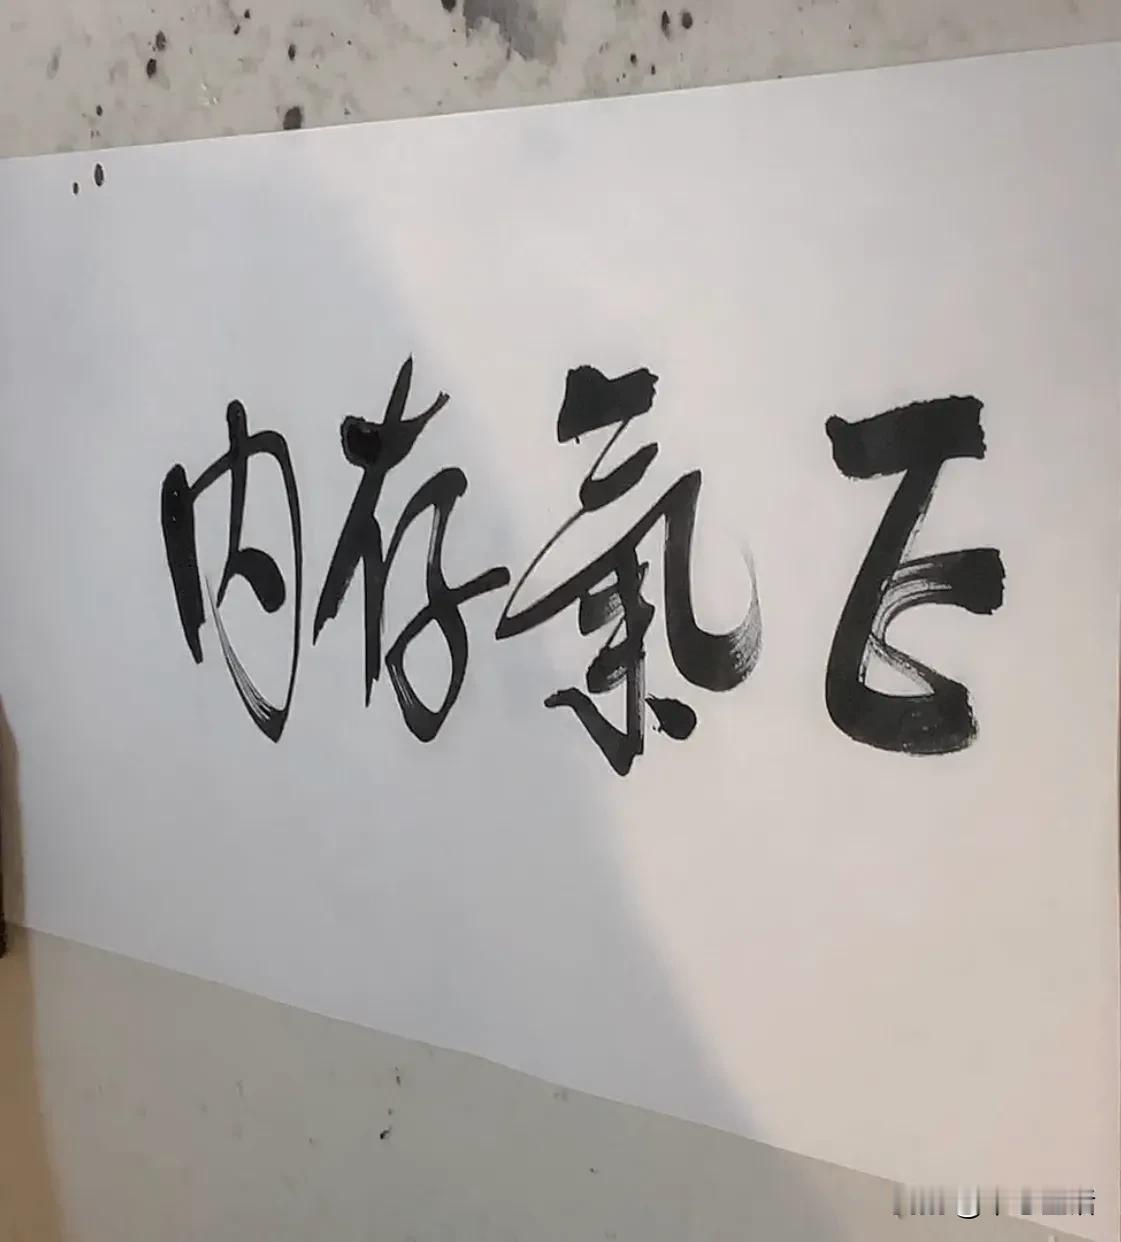 正氣存内